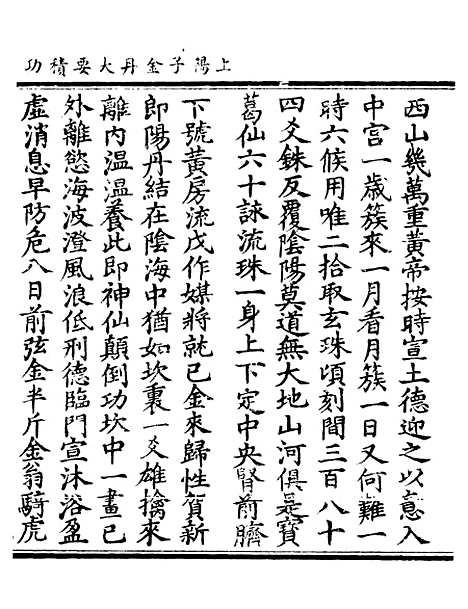 上陽子金丹大要積功
西山幾萬重黃帝按時宣土德迎之以意入
中宮一歲簇來一月看月簇一日又何難一
時六候用唯二拾取玄珠頃刻間三百八十
四爻銖反覆陰陽莫道無大地山河俱是寶
葛仙六十詠流珠一身上下定中央腎前臍
下號黃房流戊作媒將就己金來歸性賀新
郎陽丹結在陰海中猶如坎裏一爻雄擒來
離內溫溫養此即神仙顛倒功坎中一畫已
外離慾海波澄風浪低刑德臨門宣沐浴盈
虛消息早防危八日前弦金半斤金翁騎虎